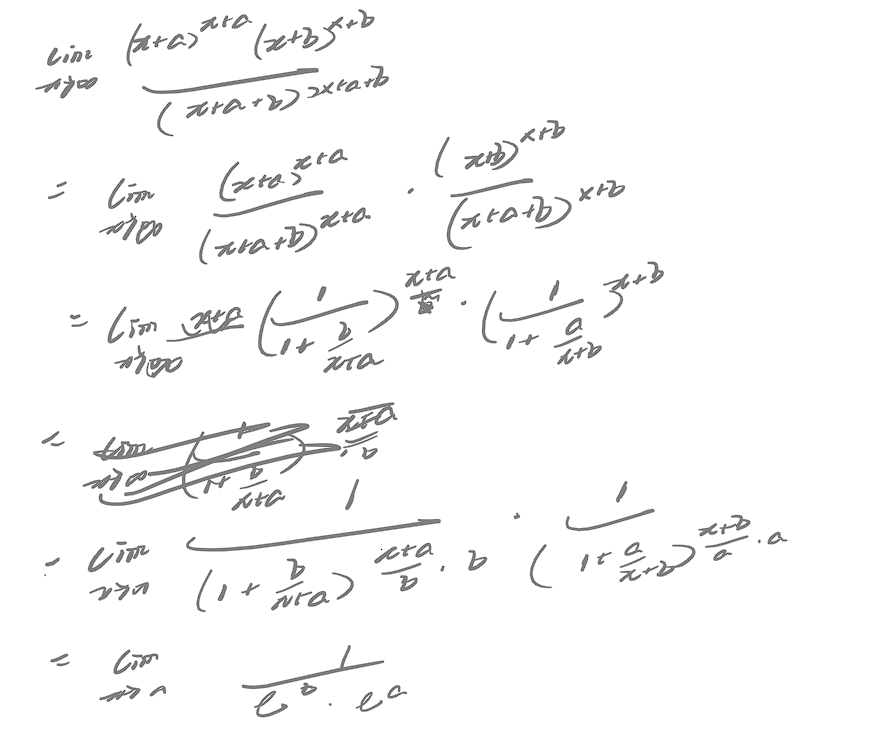 lim x→∞ (x+a)^{x+a} (x+b)^{x+b} / (x+a+b)^{2x+a+b}
= lim x→∞ (x+a)^{x+a} / (x+a+b)^{x+a} · (x+b)^{x+b} / (x+a+b)^{x+b}
= lim x→∞ (1 / (1 + b/(x+a)))^{x+a} · (1 / (1 + a/(x+b)))^{x+b}
=
= lim 1 / (1 + b/(x+a))^{(x+a)/b · b} · 1 / (1 + a/(x+b))^{(x+b)/a · a}
= lim 1 / (e^b · e^a)